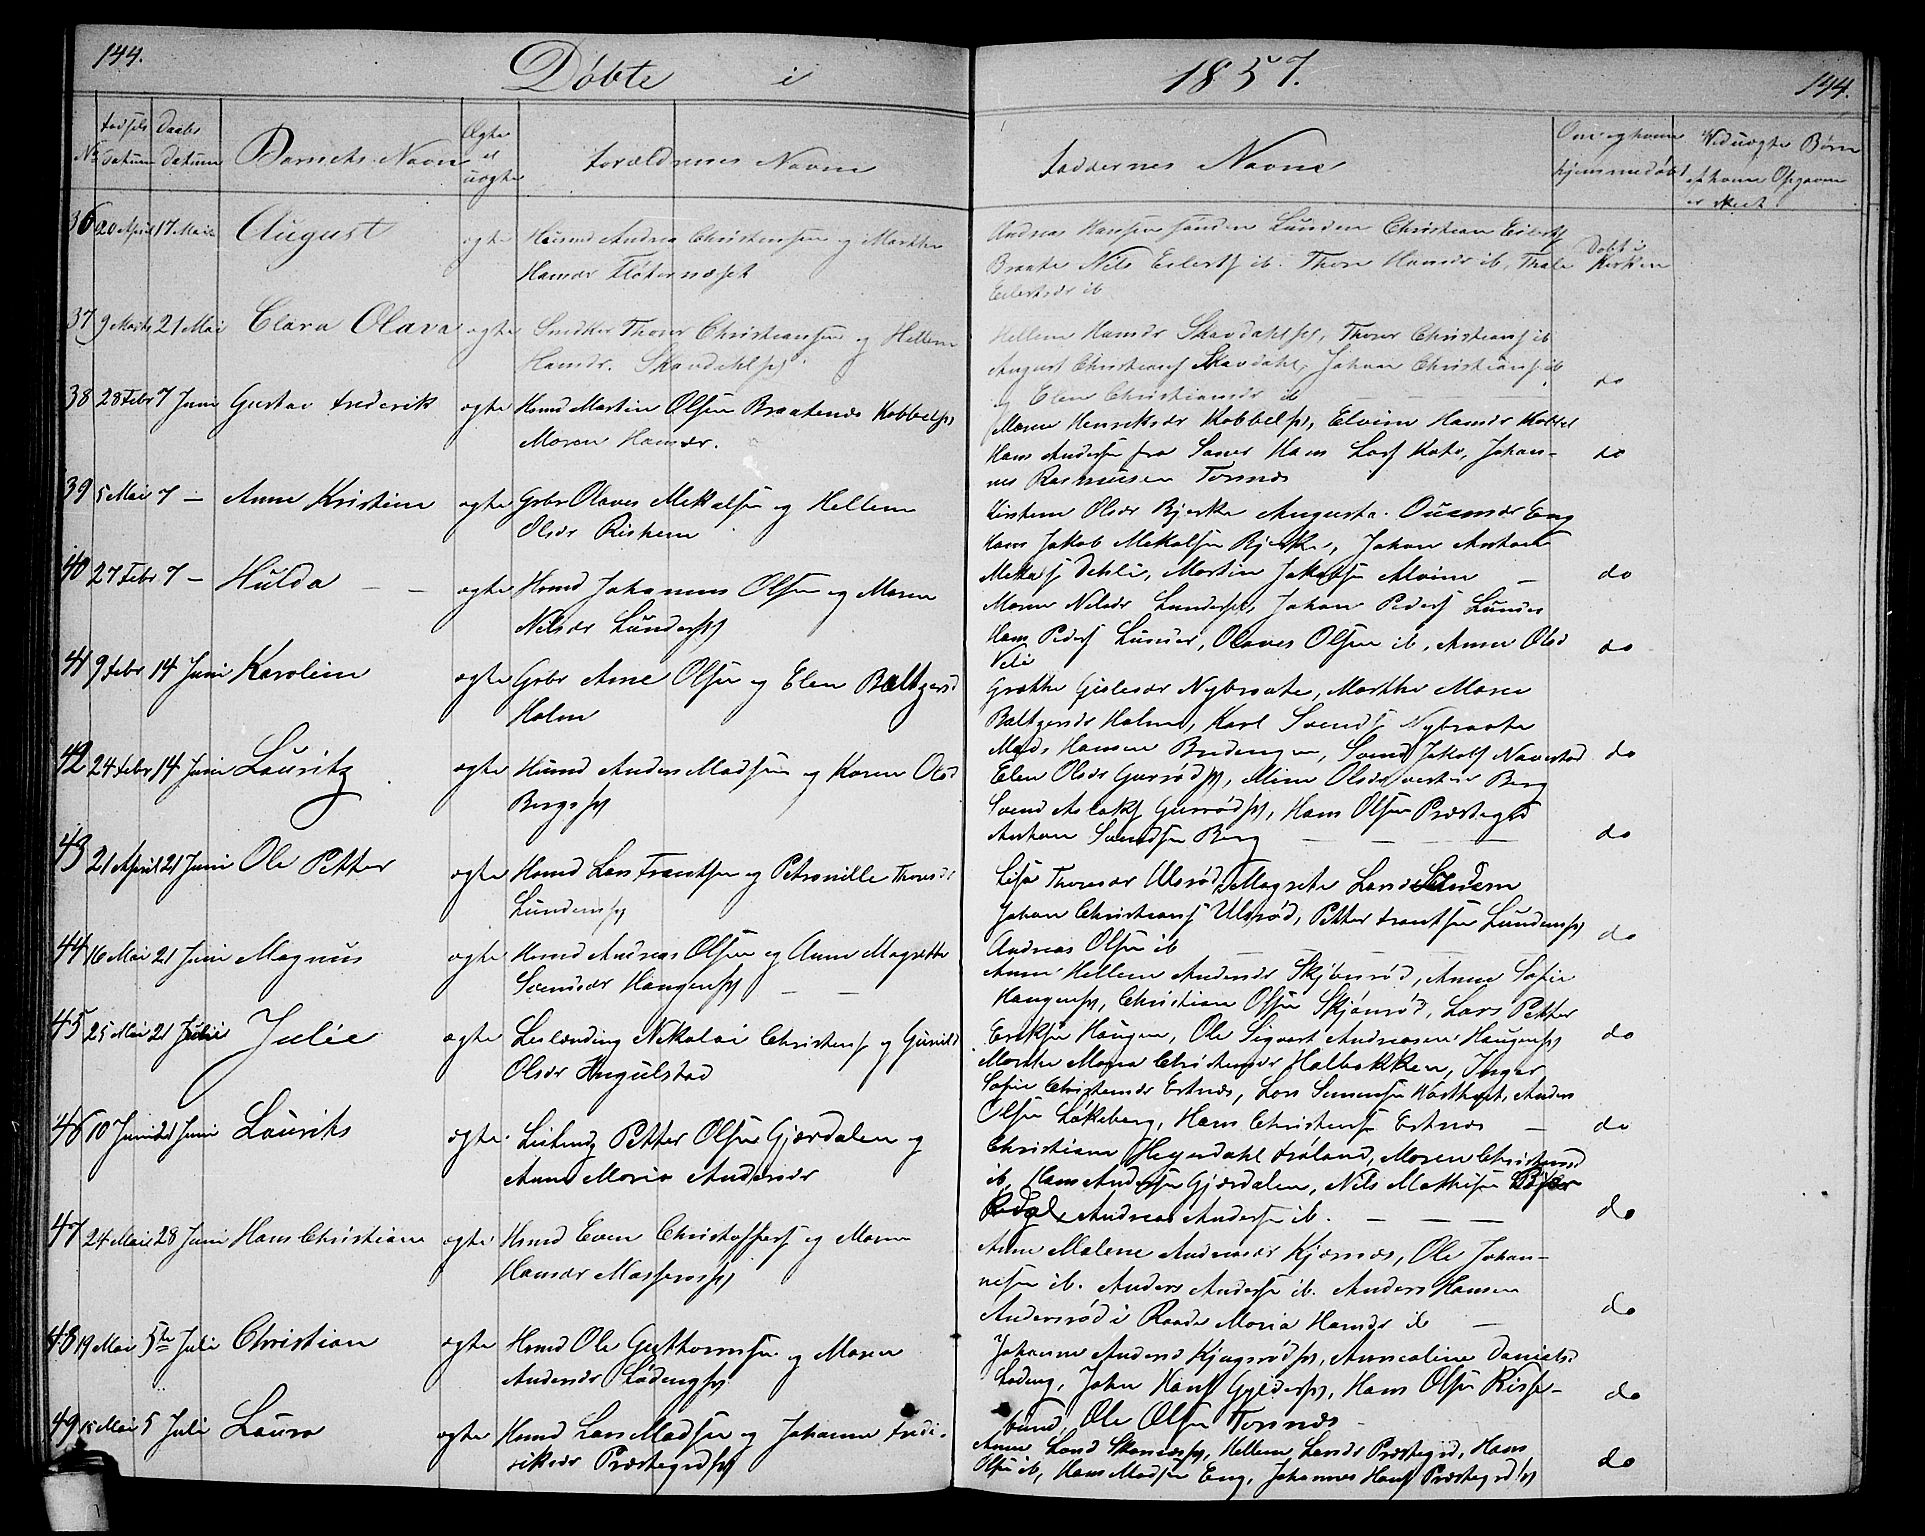 144.
Døbte i 1857.
144.
No
Fødsels datum
Daabs datum
Barnets Navn
Ægte el uægte
Forældrenes Navne
Faddernes Navne
Om og hvem hjemmedøbt
Ved uægte Børn
er skeet
36 20 April 17 Mai August ægte Husmd Andrea Christensen og Marthe
Hansdr Fløternæset
Andreas Hansen Lunden Christian Eilertsf
Braate Nils Eilertsf ib. Thore Hansdr ib, Thale
Eilertsdr ib
Døbt i Kirken
37 9 Marts 21 Mai Clara Olava ægte Snedker Thorer Christiansen og Hellene
Hansdr. Skavdahlspl
Hellene Hansdr Skavdahlspl, Thorer Christiansf ib
August Christiansf Skavdahl, Johan Christiansf ib
og Elen Christiansdr ib
do
38 28 Febr 7 Juni Gustav Frederik ægte Husmd Martin Olsen Braatenes Kobbelspl
Maren Hansdr.
Maren Henriksdr Kobbelspl, Elvine Hansdr Kobbel
Hans Andersen fra Saner Hans Larsf Kato, Johan-
nes Rasmusen Tornæs
do
39 5 Mai 7 — Anne Kristine ægte Grbr Olaves Mekalsen og Hellene
Olsdr Riskem
Kirstene Olsdr Bjerke Augusta Eng
Hans Jakob Mekalsen Bjerke, Johan
Mekalsf Dehli, Martin Jakobsen Alvim —
do
40 27 Febr 7 — Hulda — — ægte Husmd Johannes Olsen og Maren
Nilsdr Lunderspl
Maren Nilsdr Lunderspl, Johan Pedersf Lunder
Hans Pedersf Lunder, Olaves Olsen ib, Anne Olsd
Veli
do
41 9 Febr 14 Juni Karoline ægte Gbr Arne Olsen og Elen Baltzersd
Holm
Grethe Gislesdr Nybraate, Marthe Maren
Baltzersdr Holm, Karl Svendsf Nybraate
Mads Hansen Bredengen, Svend Jakobsf Navestad
do
42 24 Febr 14 Juni Lauritz ægte Husmd Anders Madsen og Karen Olsd
Bergspl
Elen Olsdr Gurrødspl, Mine Olsdr vestre Berg
Svend Aslaksf Gurrødspl, Hans Olsen Præstegrd
Anthon Svendsen Berg — — — —
do
43 21 April 21 Juni Ole Petter ægte Husmd Lars Frantsen og Petronille Thoresdr
Lundenspl
Lise Thoresdr Ulsrød, Magrete Larsd
Johan Christiansf Ulsrød, Petter Frantsen Lundenspl
Andreas Olsen ib — — —
do
44 16 Mai 21 Juni Magnus ægte Husmd Andreas Olsen og Anne Magrethe
Svensdr Haugenspl — —
Anne Hellene Andersdr Skjønrød, Anne Sofie
Haugenspl, Christian Olsen Skjønrød, Lars Petter
Eriksen Haugen, Ole Sigvart Andreasen Haugenspl
do
45 25 Mai 21 Julie ægte Leilænding Nikolai Christensf og Gunild
Olsdr Hugulstad
Marthe Maria Christensdr Halbakken, Inger
Sofie Christensdr Estnæs, Lars Simensen, Anders
Olsen Løkeberg, Hans Christensf Estnæs —
do
46 10 Juni 21 Juni Lauriths ægte. Leilendg Petter Olsen Gjærdalen og
Anne Maria Andersdr
Christiane Heyerdahl Frøland, Maren Christensd
ib, Hans Andersen Gjærdalen, Nils Mathisen
Andreas Andersen ib. — — —
do
47 24 Mai 28 Juni Hans Christian ægte Husmd Even Christoffersf og Maren
Hansdr Mosserosspl
Anne Malene Andreasdr Kjærnæs, Ole Johan-
nesen ib. Anders Andersen ib. Anders Hansen
Andersrød i Raade Maria Hansdr ib —
do
48 19 Mai 5te Juli Christian ægte Husmd Ole Guthormsen og Maren
Andersdr Lødengspl
Johanne Andersd, Anneoline Danielsd
Lødeng, John Hansf, Hans Olsen Risse-
bund, Ole Olsen Tornæs —
do
49 15 Mai 5 Juli Laura ægte Husmd Lars Madsen og Johanne Fredi-
riksdr Præstegrdspl
Anne Larsd, Hellene Larsdr Præstegrd, Hans
Olsen ib, Hans Madsen Eng, Johannes Hansf Præstegrdspl
do